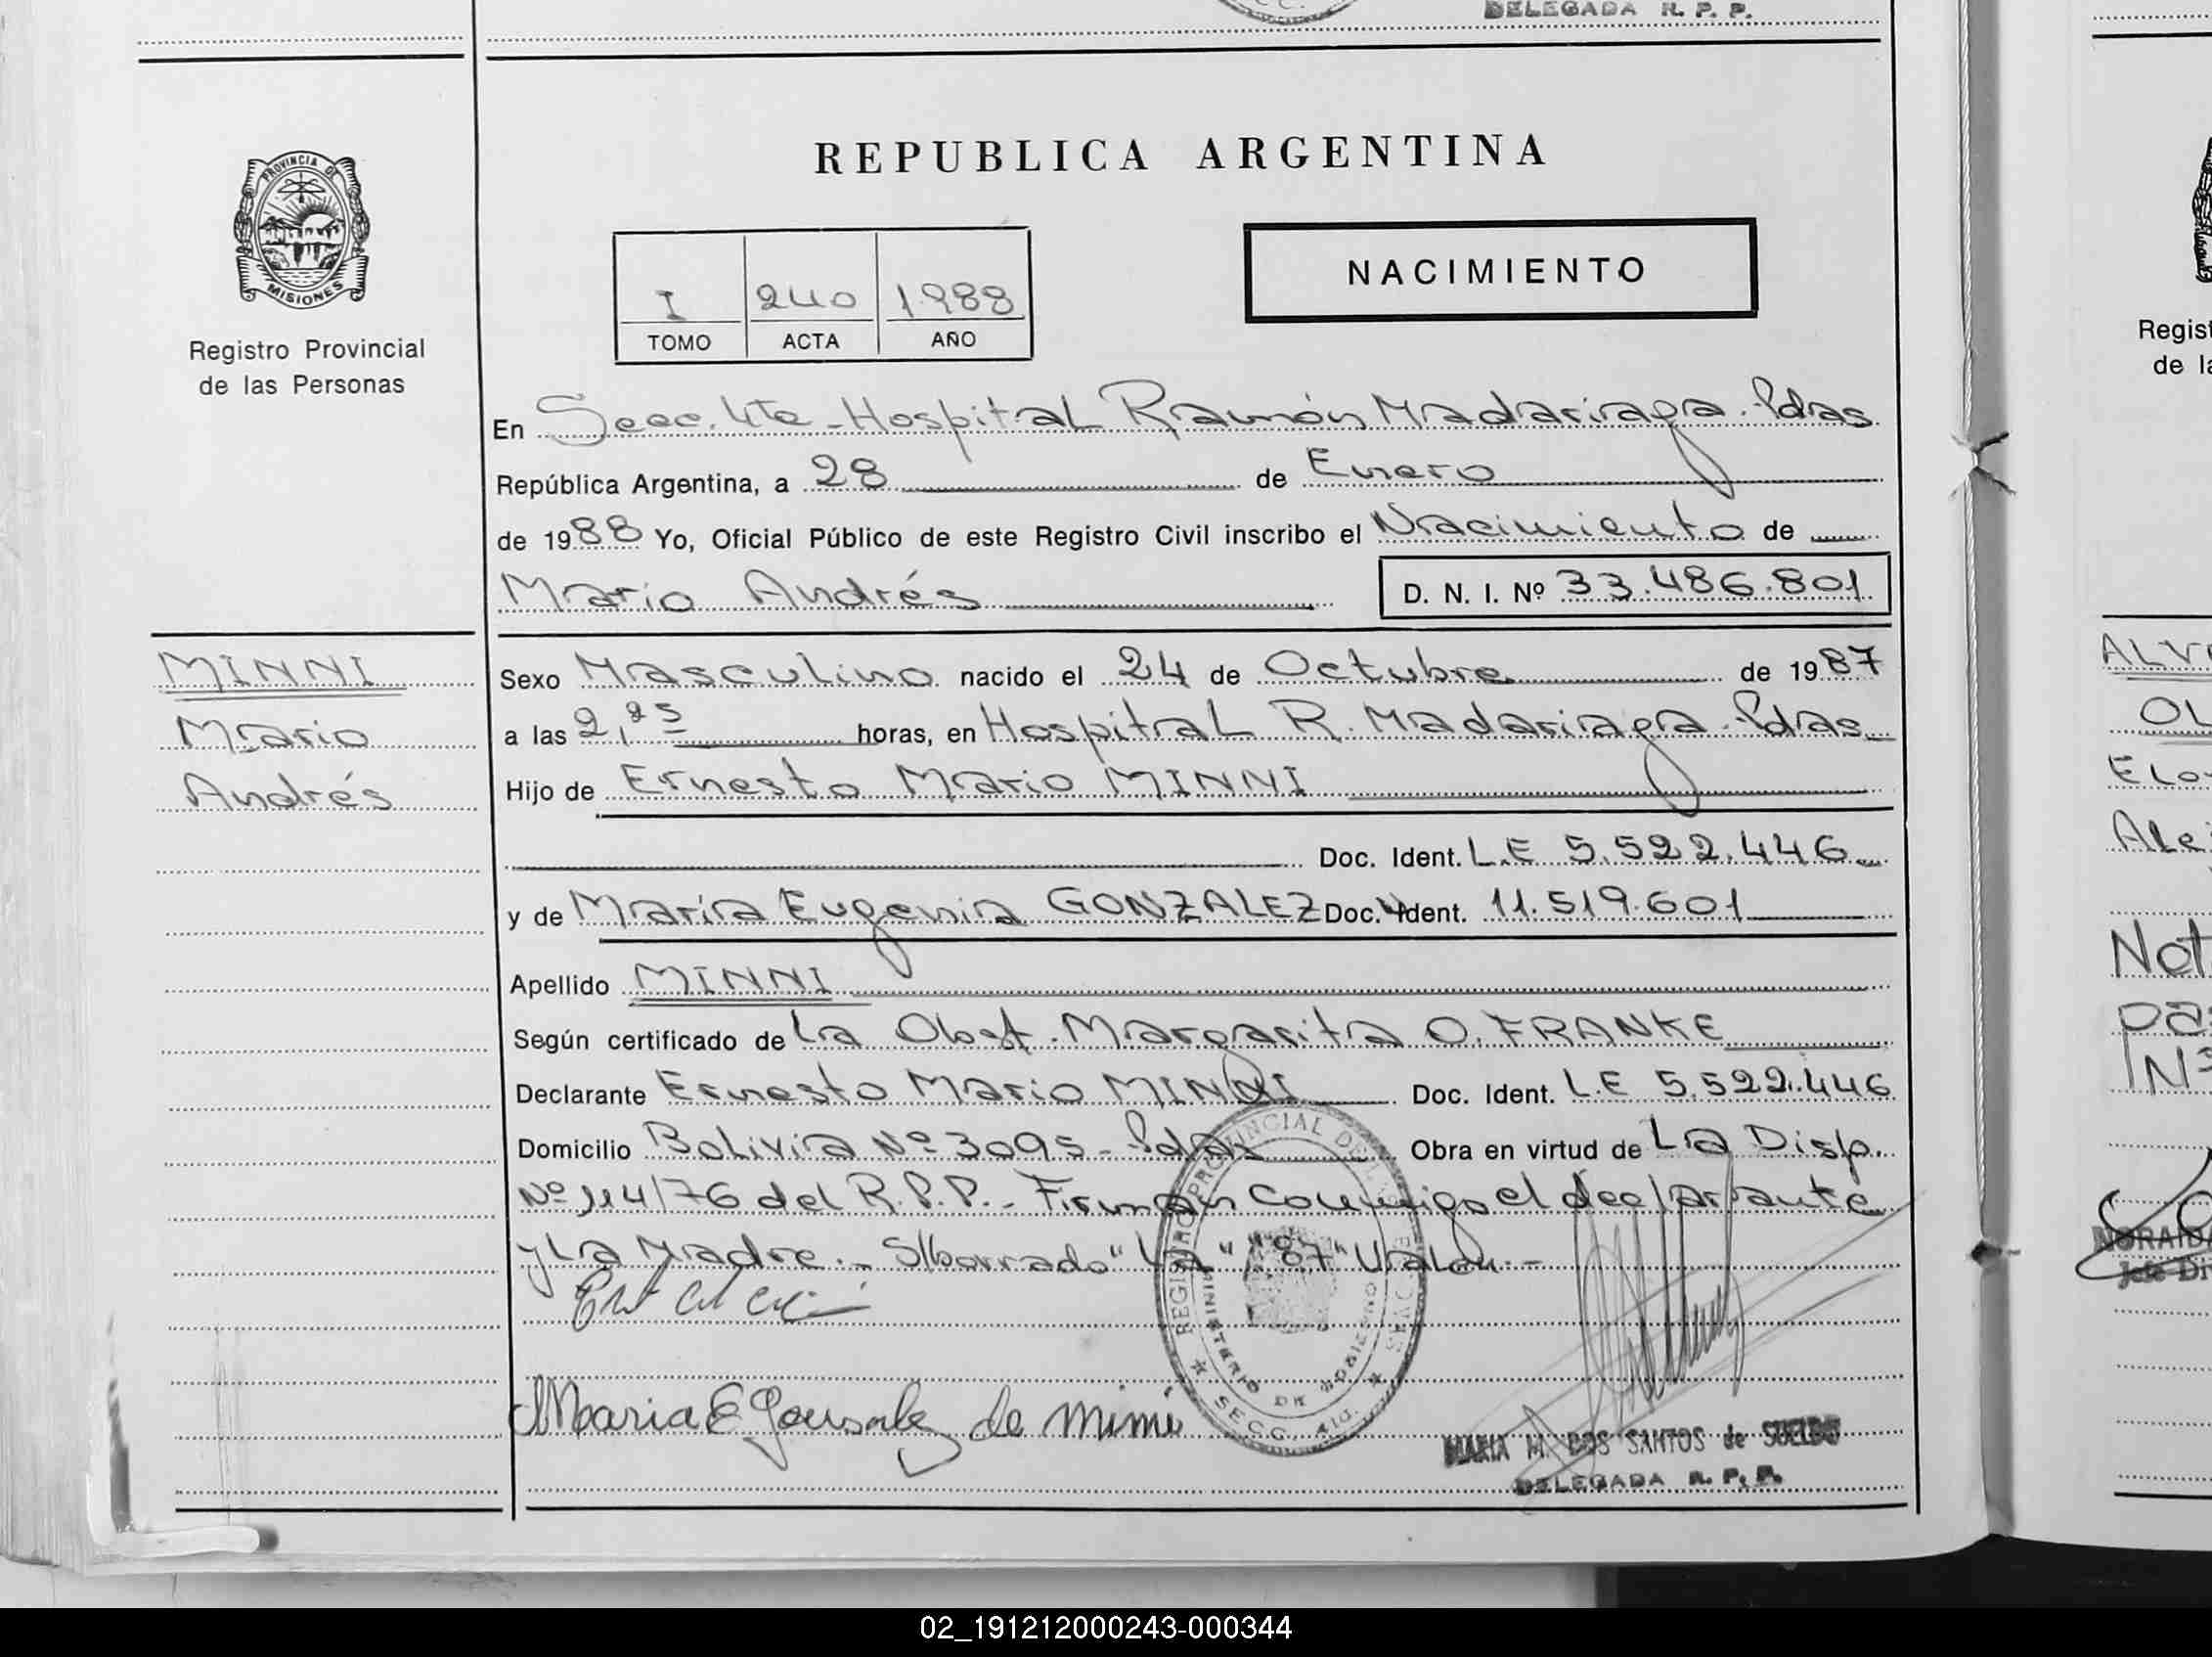 DELEGADA R. P. P.
PROVINCIA DE
MISIONES
Registro Provincial
de las Personas
REPUBLICA ARGENTINA
I 240 1988
TOMO ACTA AÑO
NACIMIENTO
En Secc. 4ta - Hospital Ramón Madariaga - Pdas
República Argentina, a 28 de Enero
de 1988 Yo, Oficial Público de este Registro Civil inscribo el Nacimiento de
Mario Andrés D. N. I. Nº 33.486.801
MINNI
Mario
Andrés
Sexo Masculino nacido el 24 de Octubre de 1987
a las 2,25 horas, en Hospital R. Madariaga - Pdas
Hijo de Ernesto Mario MINNI
Doc. Ident. L.E 5.522.446
y de María Eugenia GONZALEZ Doc. Ident. 11.519.601
Apellido MINNI
Según certificado de La Obst. Margarita O. FRANKE
Declarante Ernesto Mario MINNI Doc. Ident. L.E 5.522.446
Domicilio Bolivia Nº 3095 - Pdas Obra en virtud de La Disp.
Nº 114/76 del R.P.P. - Firman Conmigo el declarante
y La Madre. - S/borrado "La" "87" Valen. -
Maria E Gonzalez de Minni
REGISTRO PROVINCIAL DE LAS PERSONAS
MINISTERIO DE GOBIERNO
SECC. 4ta.
MARIA M. DOS SANTOS de SUELDO
DELEGADA R. P. P.
Regist
de la
ALV
OL
ELo
Ale
Not
pa
Nº
NORAIDA
Jefe Di
02_191212000243-000344